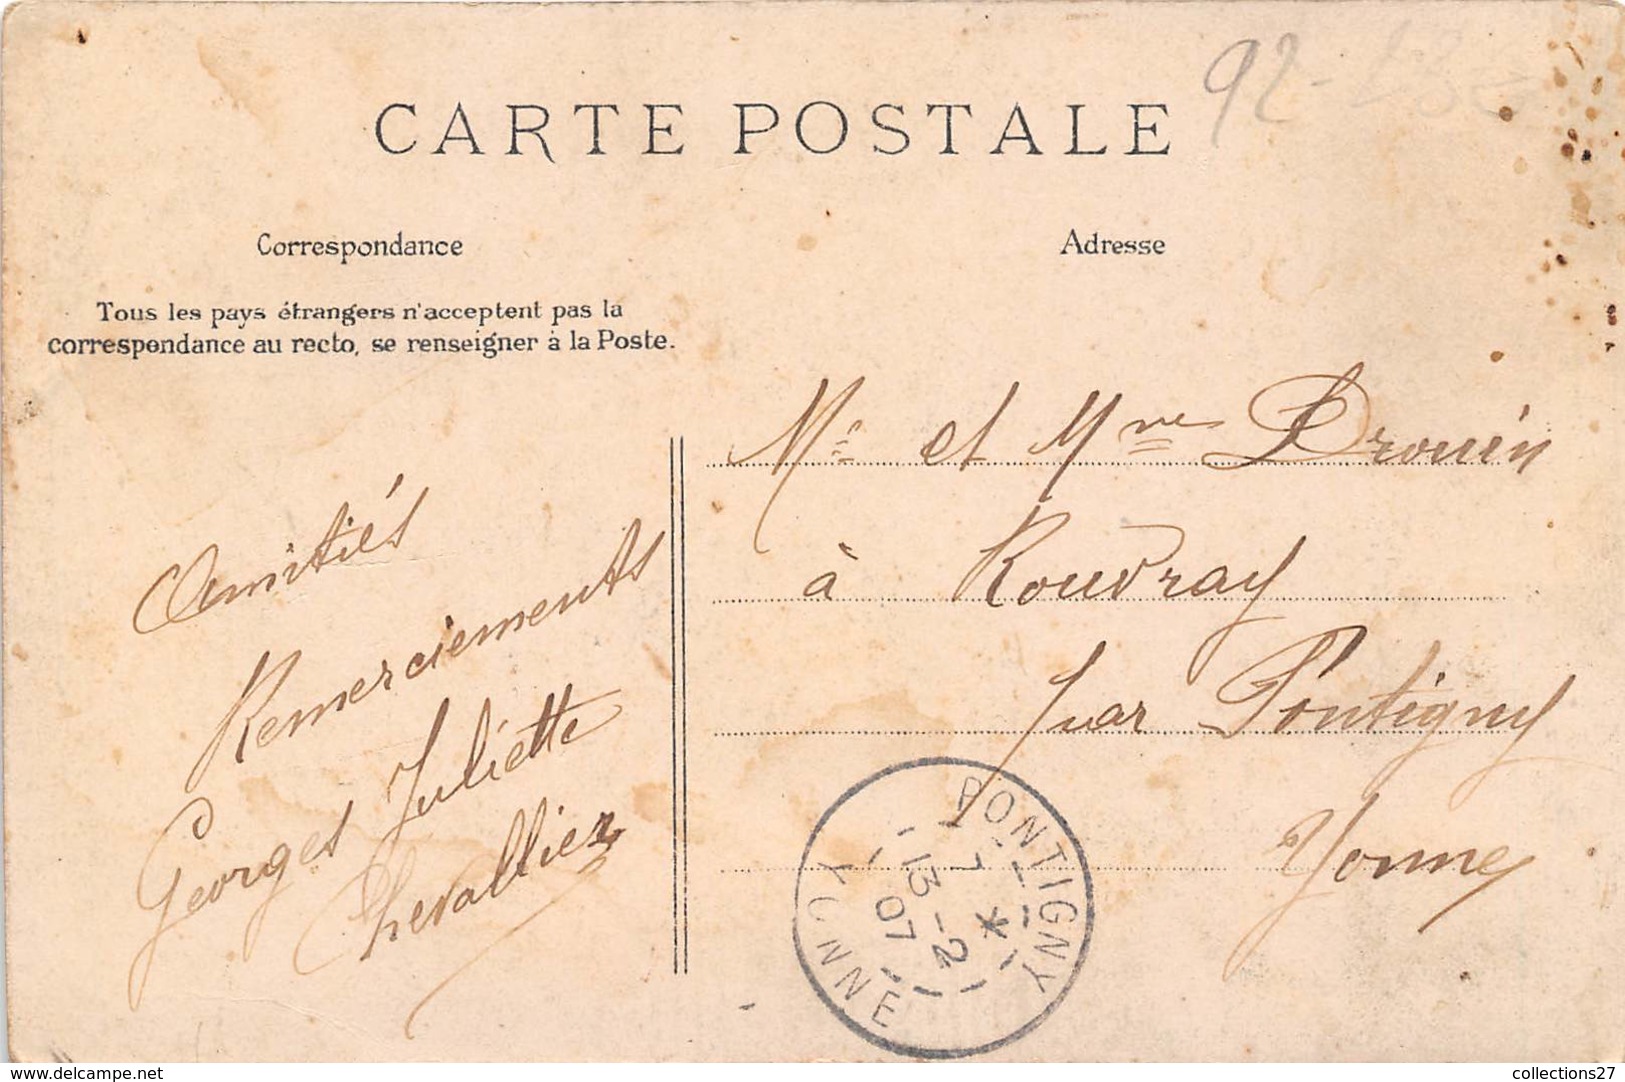 92-
CARTE POSTALE
Correspondance
Tous les pays étrangers n'acceptent pas la
correspondance au recto, se renseigner à la Poste.
Amitiés
Remerciements
Georges Juliette
Chevallier
Adresse
Mr et Mme Drouin
à Rouvray
par Pontigny
Yonne
PONTIGNY
7 *
13-2
07
YONNE
delcampe.net
collections27